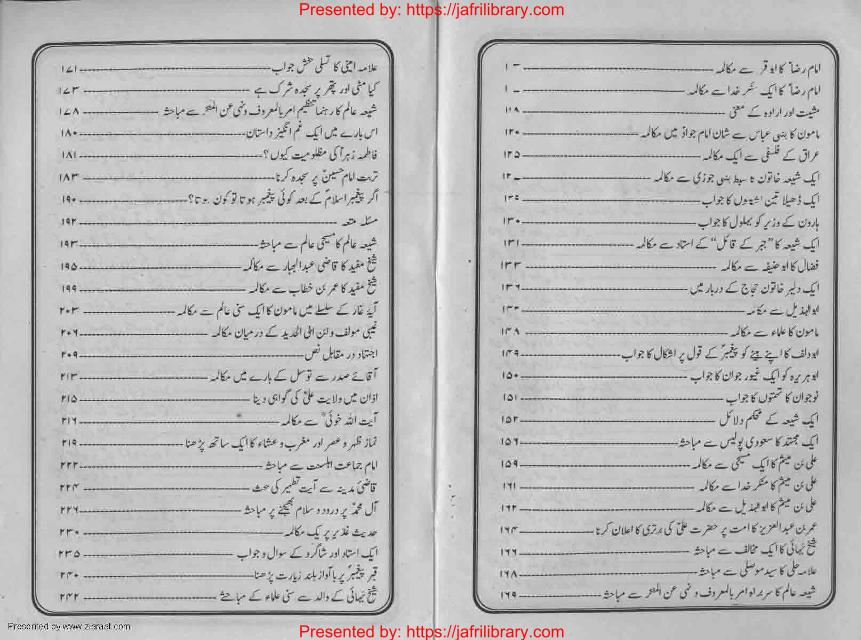 Presented by: https://jafrilibrary.com
امام رضاؑ کا ابو قر سے مکالمہ
امام رضاؑ کا ایک منکر خدا سے مکالمہ
مشیت اور ارادہ کے معنی ۱۱۸
مامون کا بنی عباس سے شان امام جوادؑ میں مکالمہ ۱۲۰
عراق کے فلسفی سے ایک مکالمہ ۱۲۵
ایک شیعہ خاتون کا سبط بنی جوزی سے مکالمہ
ایک ڈھیلا تین کا جواب
ہارون کے وزیر کو بہلول کا جواب ۱۳۰
ایک شیعہ کا "جبر کے قائل" کے استاد سے مکالمہ ۱۳۱
فضال کا ابو حنیفہ سے مکالمہ ۱۳۳
ایک دلیر خاتون حجاج کے دربار میں ۱۳۶
ابوالہذیل سے مکالمہ
مامون کا علماء سے مکالمہ ۱۴۸
ابودلف کا اپنے بیٹے کو پیغمبرؐ کے قول پر اشکال کا جواب ۱۴۹
ابو ہریرہ کو ایک غیور جوان کا جواب ۱۵۰
نوجوان کا جواب ۱۵۱
ایک شیعہ کے محکم دلائل ۱۵۲
ایک مجتہد کا سعودی پولیس سے مباحثہ ۱۵۶
علی بن میثم کا ایک مسیحی سے مکالمہ ۱۵۹
علی بن میثم کا منکر خدا سے مکالمہ ۱۶۱
علی بن میثم کا ابوالہذیل سے مکالمہ ۱۶۲
عمر بن عبدالعزیز کا امت پر حضرت علیؑ کی برتری کا اعلان کرنا ۱۶۴
شیخ بہائی کا ایک مخالف سے مباحثہ ۱۶۶
علامہ حلی کا سید موصلی سے مباحثہ ۱۶۸
شیعہ عالم کا سربراہ امر بالمعروف و نہی عن المنکر سے مباحثہ ۱۶۹
علامہ امینی کا تسلی بخش جواب ۱۷۱
کیا مٹی اور پتھر پر سجدہ شرک ہے ۱۷۳
شیعہ عالم کا رہنما تنظیم امر بالمعروف و نہی عن المنکر سے مباحثہ ۱۷۸
اس بارے میں ایک غم انگیز داستان ۱۸۰
فاطمہ زہراؑ کی مظلومیت کیوں؟ ۱۸۱
تربت امام حسینؑ پر سجدہ کرنا ۱۸۳
اگر پیغمبر اسلامؐ کے بعد کوئی پیغمبر ہوتا تو کون ہوتا؟ ۱۹۰
مسئلہ متعہ ۱۹۲
شیعہ عالم کا مسیحی عالم سے مباحثہ ۱۹۳
شیخ مفید کا قاضی عبدالجبار سے مکالمہ ۱۹۵
شیخ مفید کا عمر بن خطاب سے مکالمہ ۱۹۹
آیۂ غار کے سلسلے میں مامون کا ایک سنی عالم سے مکالمہ ۲۰۳
غیبی مولف و ابن ابی الحدید کے درمیان مکالمہ ۲۰۶
اجتہاد در مقابل نص ۲۰۹
آقائے صدر سے توسل کے بارے میں مکالمہ ۲۱۳
اذان میں ولایت علیؑ کی گواہی دینا ۲۱۵
آیت اللہ خوئیؒ سے مکالمہ ۲۱۶
نماز ظہر و عصر اور مغرب و عشاء کا ایک ساتھ پڑھنا ۲۱۹
امام جماعت اہلسنت سے مباحثہ ۲۲۲
قاضئ مدینہ سے آیت تطہیر کی بحث ۲۲۴
آل محمدؐ پر درود و سلام بھیجنے پر مباحثہ ۲۲۶
حدیث غدیر پر یک مکالمہ ۲۳۰
ایک استاد اور شاگرد کے سوال و جواب ۲۳۵
قبر پیغمبرؐ پر با آواز بلند زیارت پڑھنا ۲۴۰
شیخ بہائی کے والد سے سنی علماء کے مباحثے ۲۴۲
Presented by www.ziaraat.com
Presented by: https://jafrilibrary.com